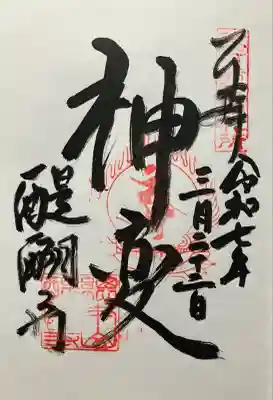 令和七年
三月二十三日
神変
醍醐寺